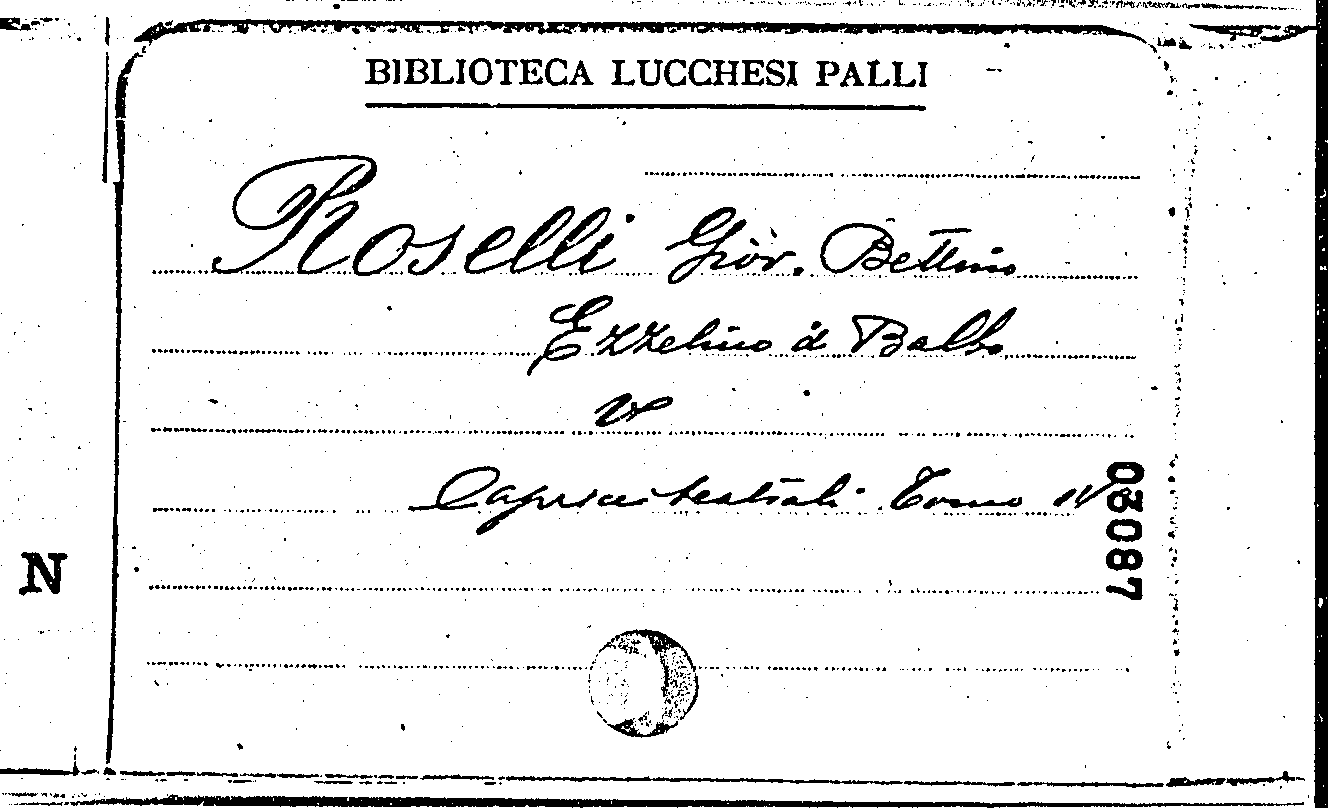 BIBLIOTECA LUCCHESI PALLI
Roselli Giov. Bettino
Ezzelino di Balbo
V
Capricci teatrali. Tomo IV
03087
N